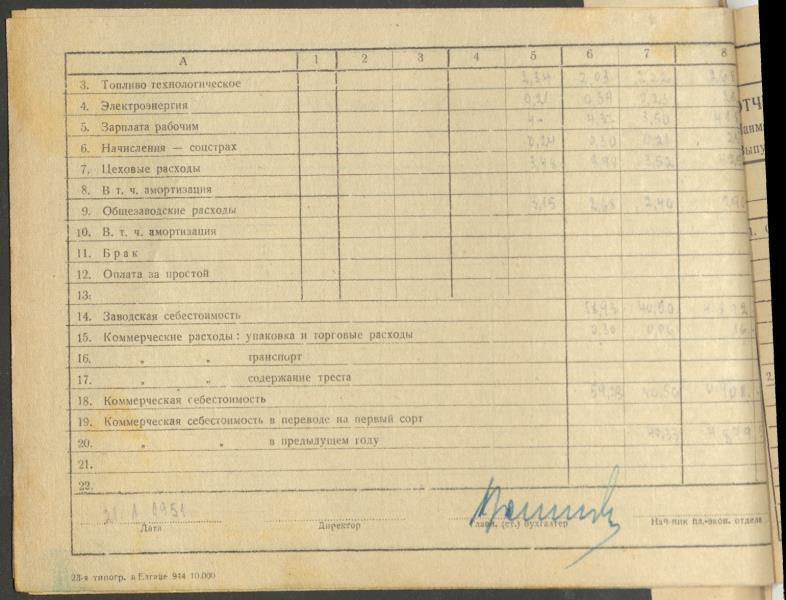 А 1 2 3 4 5 6 7 8
3. Топливо технологическое 2,34 2,03 2,22
4. Электроэнергия 0,21 0,39 0,23
5. Зарплата рабочим 4- 4,32 3,50
6. Начисления — соцстрах 0,24 0,30 0,21
7. Цеховые расходы 3,48 3,98 3,52
8. В т. ч. амортизация
9. Общезаводские расходы 3,15 2,68 2,40
10. В т. ч. амортизация
11. Брак
12. Оплата за простой
13.
14. Заводская себестоимость 58,93 40,50
15. Коммерческие расходы: упаковка и торговые расходы 0,30 0,06
16. „ „ транспорт
17. „ „ содержание треста
18. Коммерческая себестоимость 59,23 40,56
19. Коммерческая себестоимость в переводе на первый сорт
20. „ „ в предыдущем году
21.
22.
21. 1. 1951
Дата Директор Главн. (ст.) бухгалтер Нач-ник пл.-экон. отдела
23-я типогр. в Елгаве 944 10.000